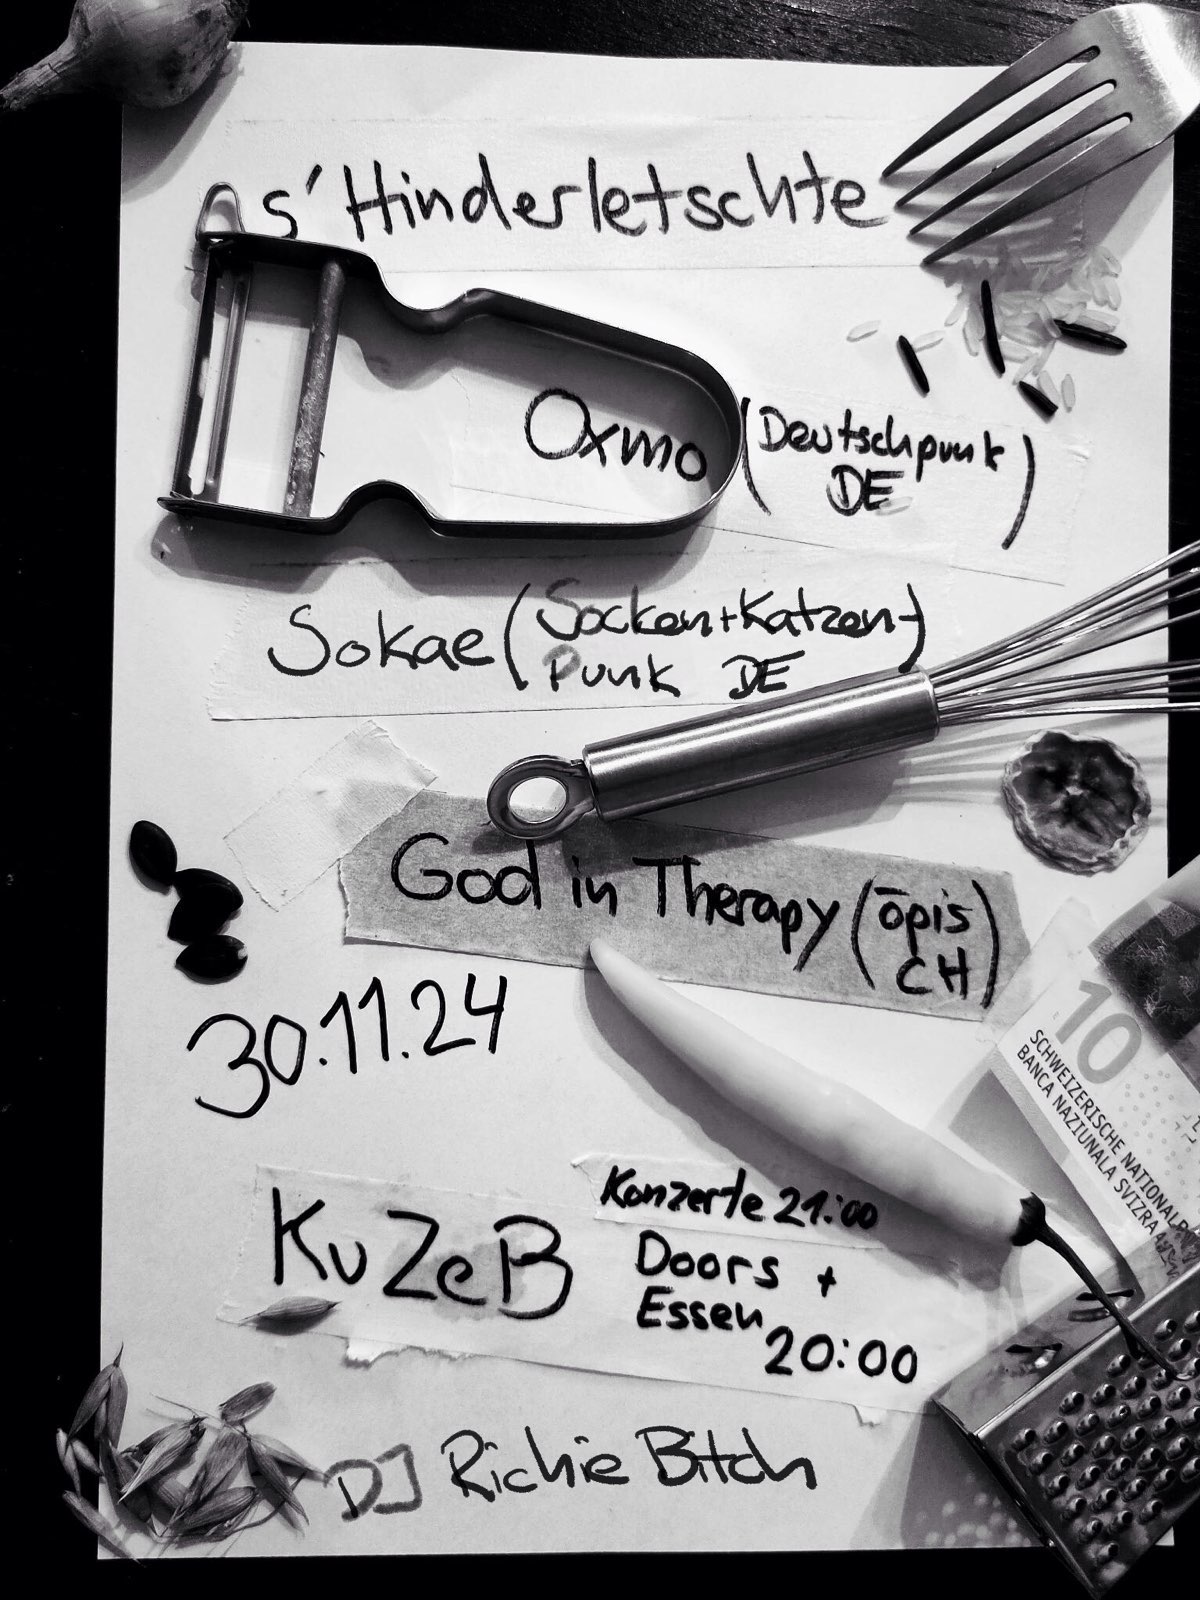 s' Hinderletschte
Oxmo (Deutschpunk
DE)
Sokae (Socken+Katzen-
Punk DE)
God in Therapy (ōpis
CH)
30.11.24
10
SCHWEIZERISCHE NATIONALB
BANCA NAZIUNALA SVIZRA
KuZeB
Konzerte 21:00
Doors +
Essen
20:00
DJ Richie Bitch